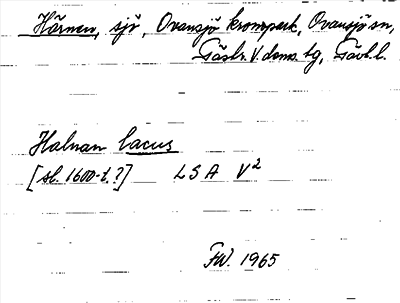 Härnen, sjö, Ovansjö kronopark, Ovansjö sn,
Gästr. V. doms. tg, Gävl. l.
Halnan lacus
[sl. 1600-t.?] LSA V²
FW. 1965